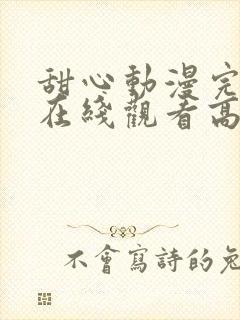 甜心動漫完
在綫觀看高
不會寫詩的兔